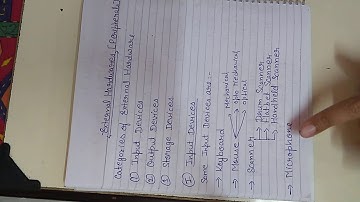 External Hardwares [Peripherals]
Categories of External Hardware
① Input Devices
② Output Devices
③ Storage Devices
① Input Devices:
Some Input Devices are:-
→ Keyboard
→ Mouse → Mechanical
→ Opto Mechanical
→ Optical
→ Scanner → Drum Scanner
→ Flatbed Scanner
→ Handheld Scanner
→ Microphone